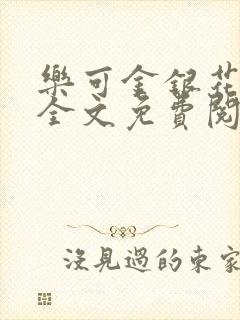 樂可金銀花
全文免費閱
沒見過的東家